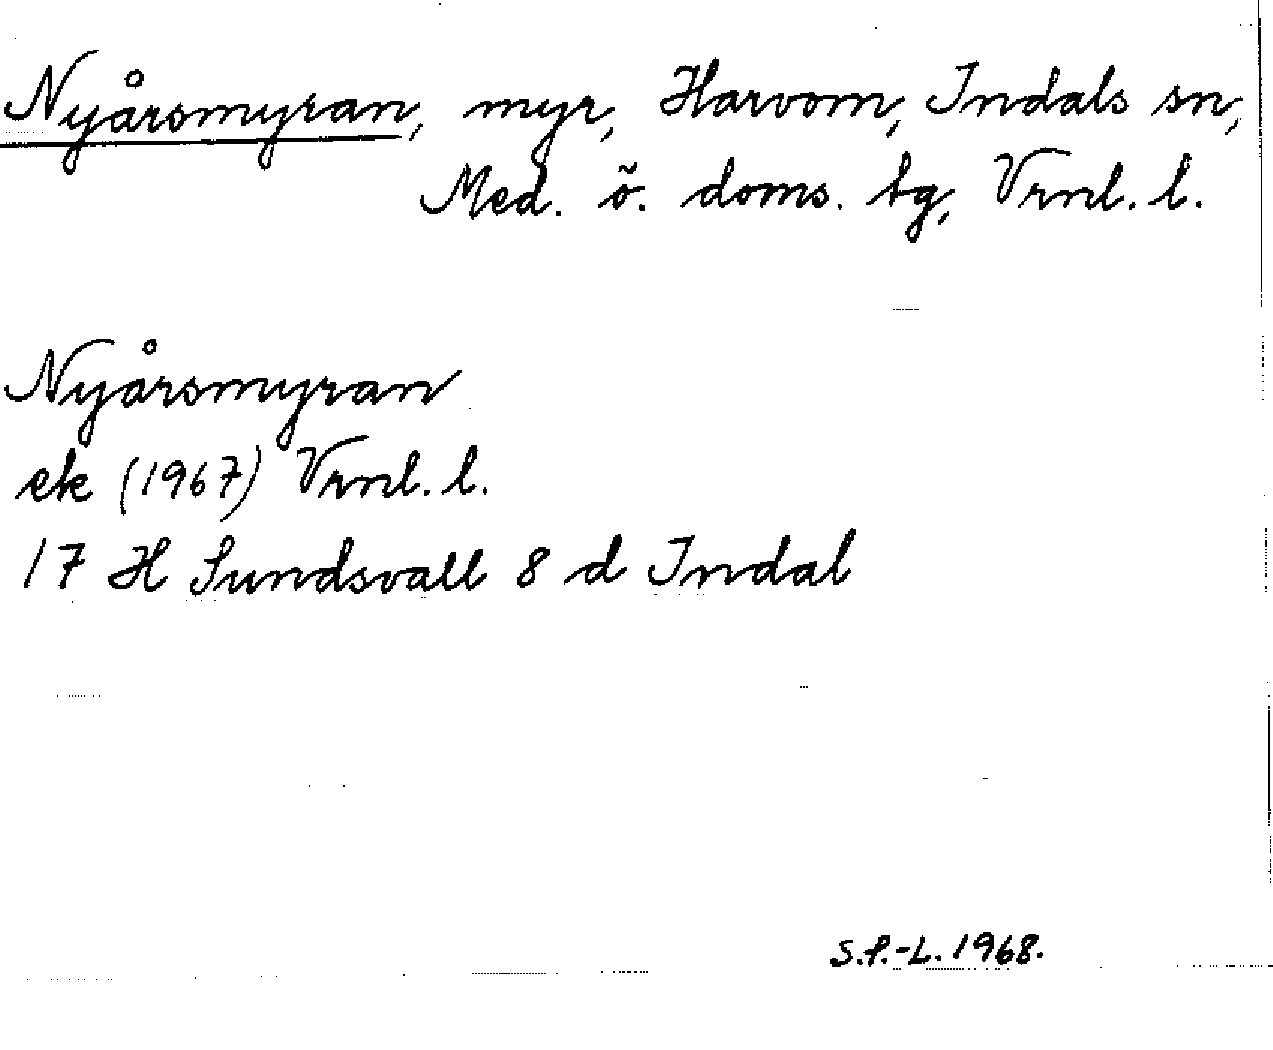 Nyårsmyran, myr, Harvom, Indals sn,
Med. ö. doms. tg, Vrnl. l.
Nyårsmyran
ek (1967) Vrnl. l.
17 H Sundsvall 8 d Indal
S.P.-L. 1968.